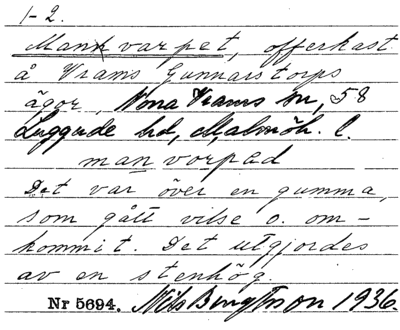 1-2.
Mankvarpet, offerkast
å Vrams Gunnarstorps
ägor, Norra Vrams sn, 58
Luggude hd, Malmöh. l.
manvorpad
Det var över en gumma,
som gått vilse o. om-
kommit. Det utgjordes
av en stenhög.
Nr 5694. Nils Bengtsson 1936.